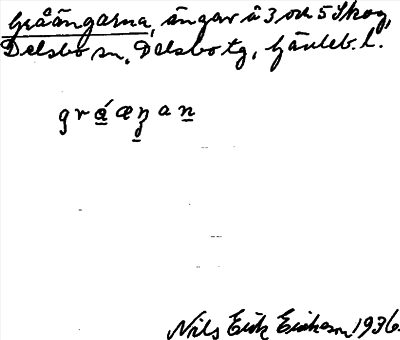 Gråängarna, ängar å 3 och 5 Skog,
Delsbo sn, Delsbo tg, Gävleb. l.
gráæŋan
Nils Erik Erikson 1936.